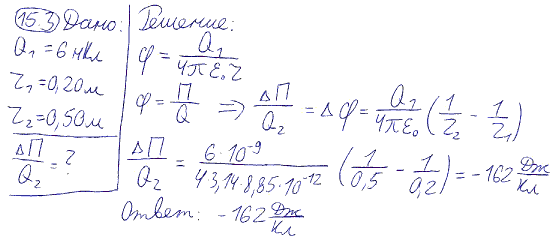 15.3 Дано: Решение:
Q₁ = 6 нКл
r₁ = 0,20 м
r₂ = 0,50 м
ΔП/Q₂ = ?
φ = Q₁/(4πε₀r)
φ = П/Q ⇒ ΔП/Q₂ = Δφ = Q₁/(4πε₀) (1/r₂ − 1/r₁)
ΔП/Q₂ = 6·10⁻⁹/(4·3,14·8,85·10⁻¹²) (1/0,5 − 1/0,2) = −162 Дж/Кл
Ответ: −162 Дж/Кл